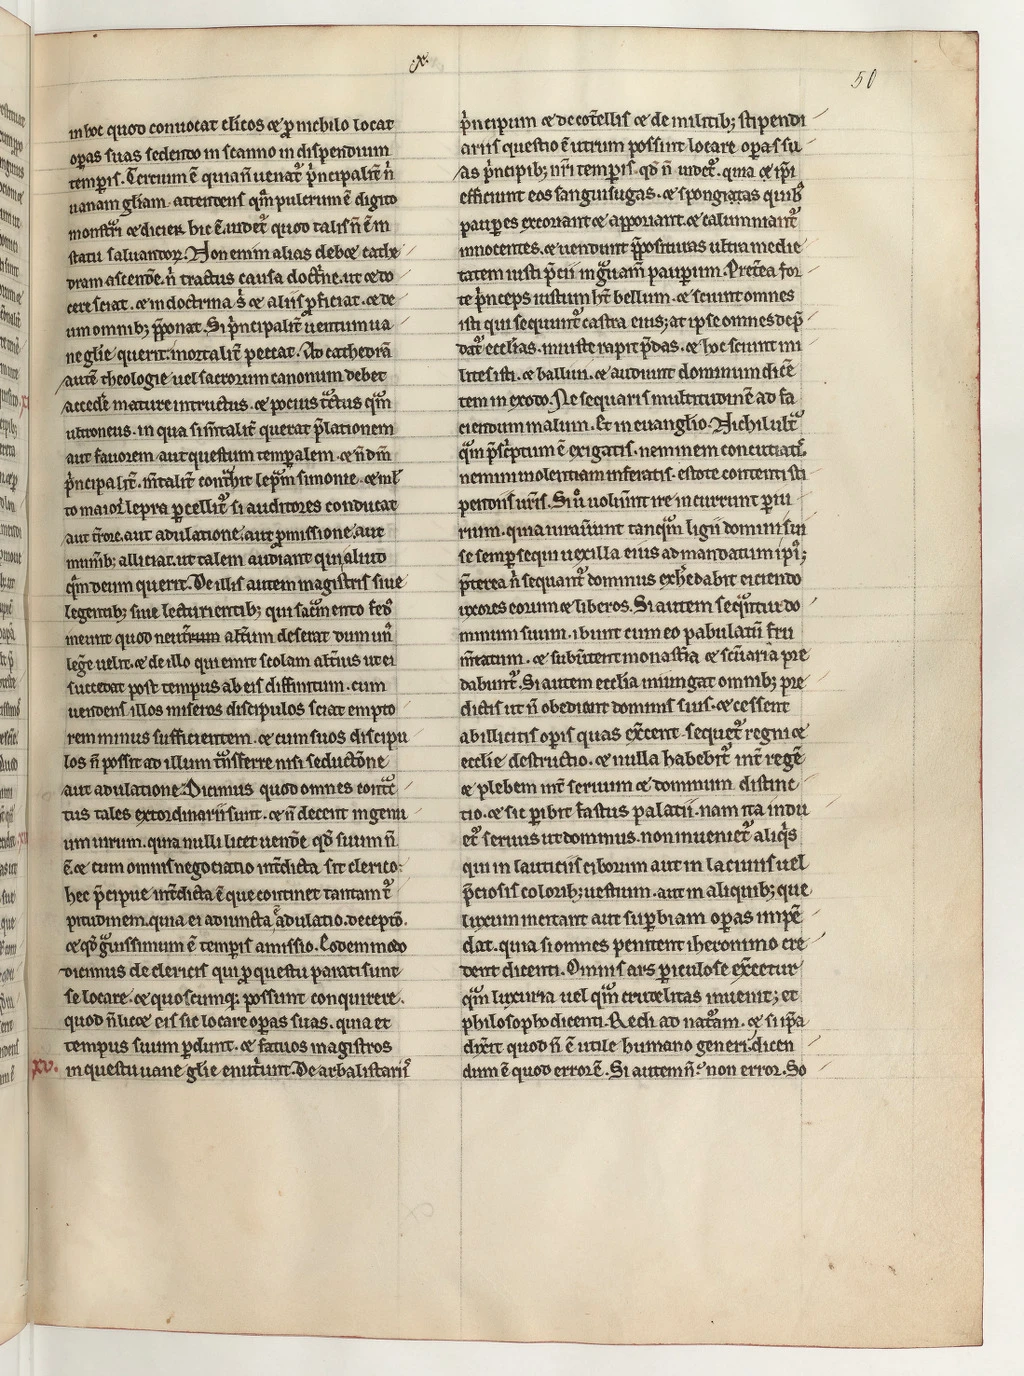 .x.
50
in hoc quod conuocat cl̃icos ⁊ ꝓ nichilo locat
oꝑas suas sedendo in scanno in dispendium
temꝑis. Tercium ẽ quia ñ uenat᷑ p̃ncipalit̃ ñ
uanam gl̃iam. attendens qm̃ pulcrum ẽ digito
monstrĩ ⁊ dicier hic ẽ. uidet᷑ quod talis ñ ẽ in
statu saluandoꝝ. Non enim alias debet cathe
dram ascende᷑. ñ tractus causa doct̃ne. ut ⁊ do
cere sciat. ⁊ in doctrina s̃ ⁊ aliis ꝓficiat. ⁊ de
um omnib; p̃ponat. Si p̃ncipalit̃ uentum ua
ne glĩe querit. mortalit̃ peccat. Ad cathedrã
autẽ theologie uel sacrorum canonum debet
accede᷑ mature instructus. ⁊ pocius t̃ctus qm̃
ultroneus. in qua si m̃talit̃ querat p̃lationem
aut fauorem aut questum temꝑalem. ⁊ ñ dm̃
p̃ncipalit̃. m̃talit̃ cont̃hit lep̃m simonie. ⁊ ml̃
to maiori lepra ꝑcellit᷑ si auditores conducat
aut t̃rore. aut adulatione. aut ꝓmissione. aut
mun̾ib; alliciat. ut talem audiant qui aliud
qm̃ deum querit. De illis autem magistris siue
legentib; siue lecturientib; qui sac̃mento fed᷑e
ineunt quod neutrum alt̃um deserat dum un̾
lege᷑ uelit. ⁊ de illo qui emit scolam alt̃ius ut ei
succedat post tempus ab eis diffinitum. cum
uendens illos miseros discipulos sciat empto
rem minus sufficientem. ⁊ cum suos discipu
los ñ possit ad illum t̃nsferre nisi seductõne
aut adulatione. Dicimus quod omnes cont᷑c
tus tales extordinarii sunt. ⁊ ñ decent ingenu
um uirum. quia nulli licet uende᷑ qd̃ suum ñ
ẽ. ⁊ cum omnis negociatio int̃dicta sit clerico:
hec p̃cipue int̃dicta ẽ que continet tantam t᷑
pitudinem. quia ei adiuncta ẽ adulatio. deceptõ.
⁊ qd̃ g᷑uissimum ẽ temꝑis amissio. Eodem modo
dicimus de clericis qui ꝓ questu parati sunt
se locare. ⁊ quoscumq; possunt conquirere.
quod ñ licet eis sic locare oꝑas suas. quia et
tempus suum ꝑdunt. ⁊ fatuos magistros
xv. in questu uane glĩe enut̃unt. De arbalistarii᷑
p̃ncipum ⁊ de cot̃ellis ⁊ de militib; stipendi
ariis questio ẽ utrum possint locare oꝑas su
as p̃ncipib; nr̃i temꝑis. qd̃ ñ uidet᷑. quia ⁊ ip̃i
efficiunt eos sanguisugas. ⁊ spongiatas quib᷑
pauꝑes excoriant ⁊ apporiant. ⁊ calumniant᷑
innocentes. ⁊ uendunt p̃posituras ultra medie
tatem iusti p̃cii in g᷑uam̃ pauꝑum. Pret̃ea for
te p̃nceps iustum ht̃ bellum. ⁊ sciunt omnes
isti qui sequunt᷑ castra eius; at ipse omnes dep̃
dat᷑ ecc̃lias. iniuste rapit p̃das. ⁊ hoc sciunt mi
lites isti. ⁊ balliui. ⁊ audiunt dominum dicẽ
tem in exodo. Ne sequaris multitudinẽ ad fa
ciendum malum. Et in euanglĩo. Nichil ult᷑
qm̃ p̃sc̃ptum ẽ exigatis. neminem concuciatis.
nemini uiolentiam inferatis. estote contenti sti
pendiis ur̃is. Si ũ uoluĩnt ire incurrunt ꝑiu
rium. quia iurauĩunt tanqm̃ ligii domini sui
se semꝑ sequi uexilla eius ad mandatum ipĩ;
p̃terea ñ sequant᷑ dominus exh̃edabit eiciendo
uxores eorum ⁊ liberos. Si autem sequunt᷑ do
minum suum. ibunt cum eo pabulatũ fru
m̃tatum. ⁊ subũtent monast̃ia ⁊ sc̃uaria pre
dabunt᷑. Si autem ecc̃lia iniungat omnib; pre
dictis ut ñ obediant dominis suis. ⁊ cessent
ab illicitis oꝑis quas ex̃cent. sequet᷑ regni ⁊
ecc̃lie destructio. ⁊ nulla habebit᷑ int̃ regẽ
⁊ plebem int̃ seruum ⁊ dominum distinc
tio. ⁊ sic ꝑibit fastus palatii. nam ita indu
et᷑ seruus ut dominus. non inueniet᷑ aliq̃s
qui in lauticiis ciborum aut in laciuiis uel
p̃ciosis colorib; uestium. aut in aliquib; que
luxum incitant aut suꝑbiam oꝑas impẽ
dat. quia si omnes penitent iheronimo cre
dent dicenti. Omnis ars ꝑiculose ex̃cetur
qm̃ luxuria uel qm̃ crudelitas inuenit; et
philosopho dicenti. Redi ad nat᷑am. ⁊ si ip̃a
dix̃it quod ñ ẽ utile humano generi. dicen
dum ẽ quod errorẽ. Si autem ñ: non error. So